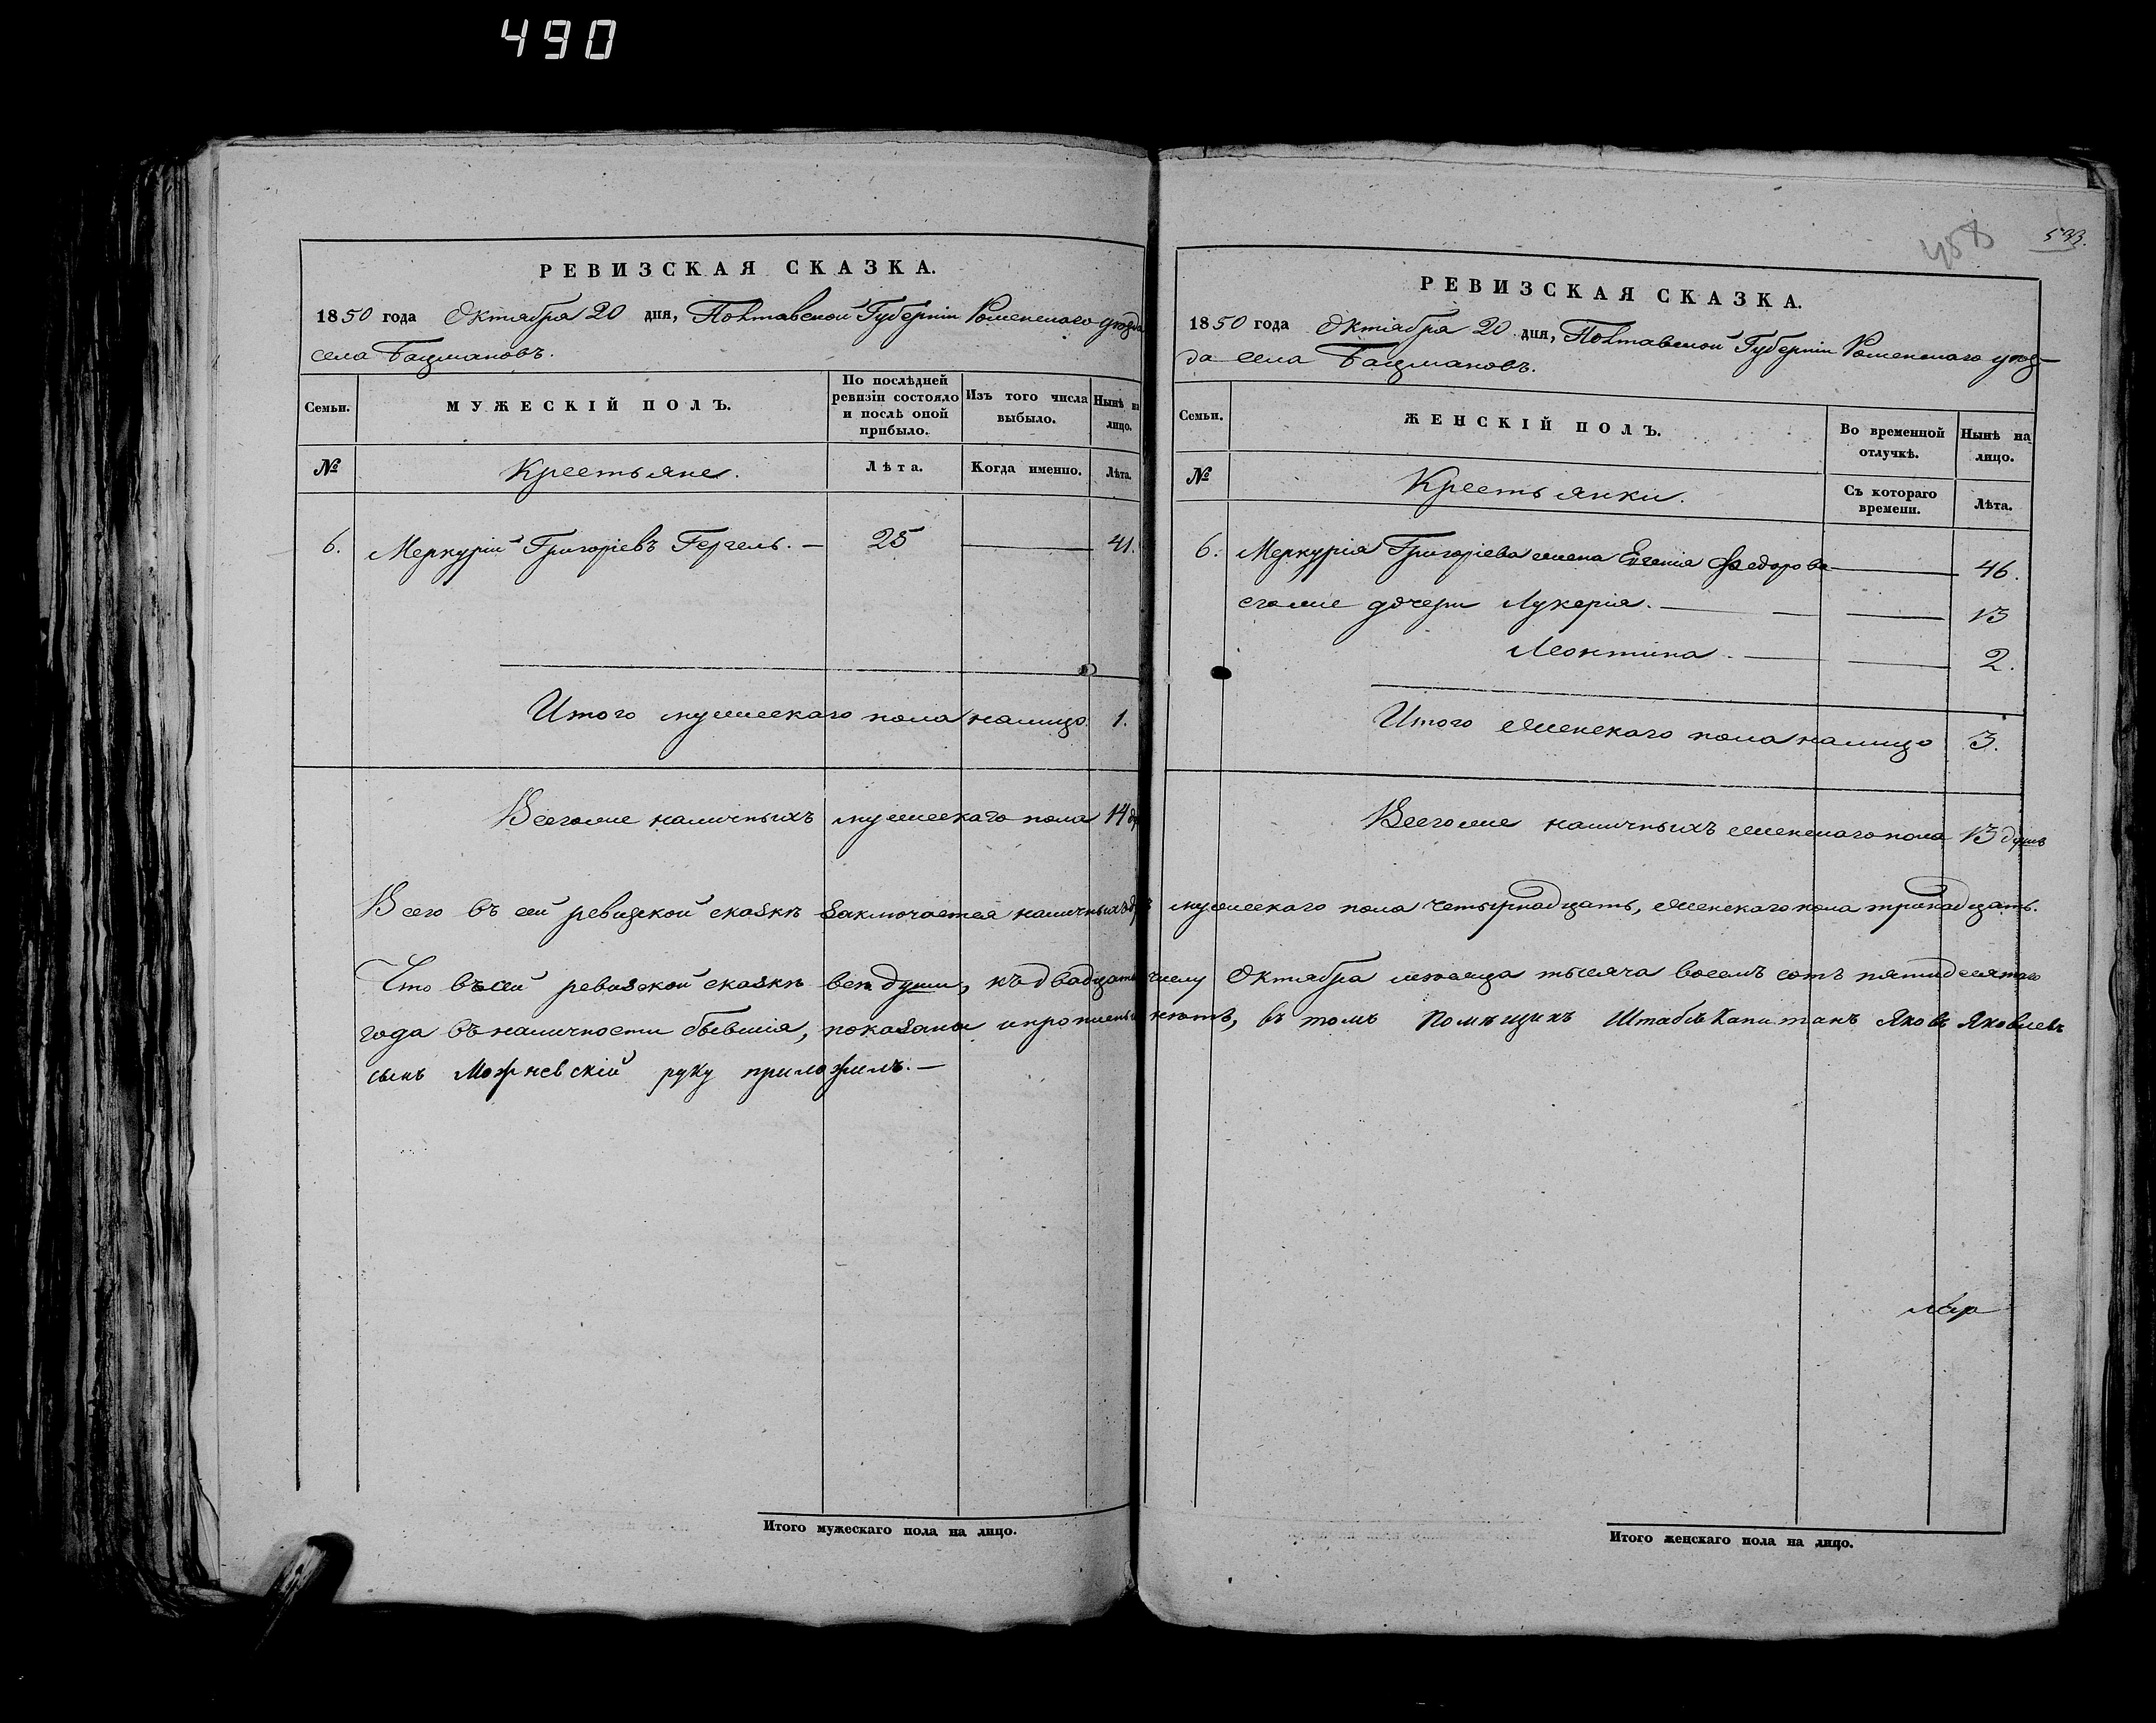 490
РЕВИЗСКАЯ СКАЗКА.
1850 года Октября 20 дня, Полтавской Губерніи Роменскаго уѣзда
села Бацмановъ.
Семьи.
МУЖЕСКІЙ ПОЛЪ.
По послѣдней ревизіи состояло и послѣ оной прибыло.
Изъ того числа выбыло.
Нынѣ на лицо.
№
Крестьяне.
Лѣта.
Когда именно.
Лѣта.
6. Меркурій Григоріевъ Гергель. — 25 — 41.
Итого мужескаго пола налицо 1.
Всегоже наличныхъ мужескаго пола 14
458
533.
РЕВИЗСКАЯ СКАЗКА.
1850 года Октября 20 дня, Полтавской Губерніи Роменскаго уѣз-
да села Бацмановъ.
Семьи.
ЖЕНСКІЙ ПОЛЪ.
Во временной отлучкѣ.
Нынѣ на лицо.
№
Крестьянки.
Съ котораго времени.
Лѣта.
6. Меркурія Григоріева жена Евгенія Федорова — 46.
егоже дочери Лукерія. — — 13
Леонтина. — — 2.
Итого женскаго пола налицо 3.
Всегоже наличныхъ женскаго пола 13 душъ
Всего въ сей ревизской сказкѣ заключается наличныхъ мужескаго пола четырнадцать, женскаго пола тринадцать.
Что въ сей ревизской сказкѣ всѣ души, къ двадцатому числу Октября мѣсяца тысяча восемь сотъ пятидесятаго
года въ наличности бывшія, показаны и прописныхъ нѣтъ, въ томъ Помѣщикъ Штабсъ Капитанъ Яковъ Яковлевъ
сынъ Можневскій руку приложилъ. —
Итого мужескаго пола на лицо.
Итого женскаго пола на лицо.